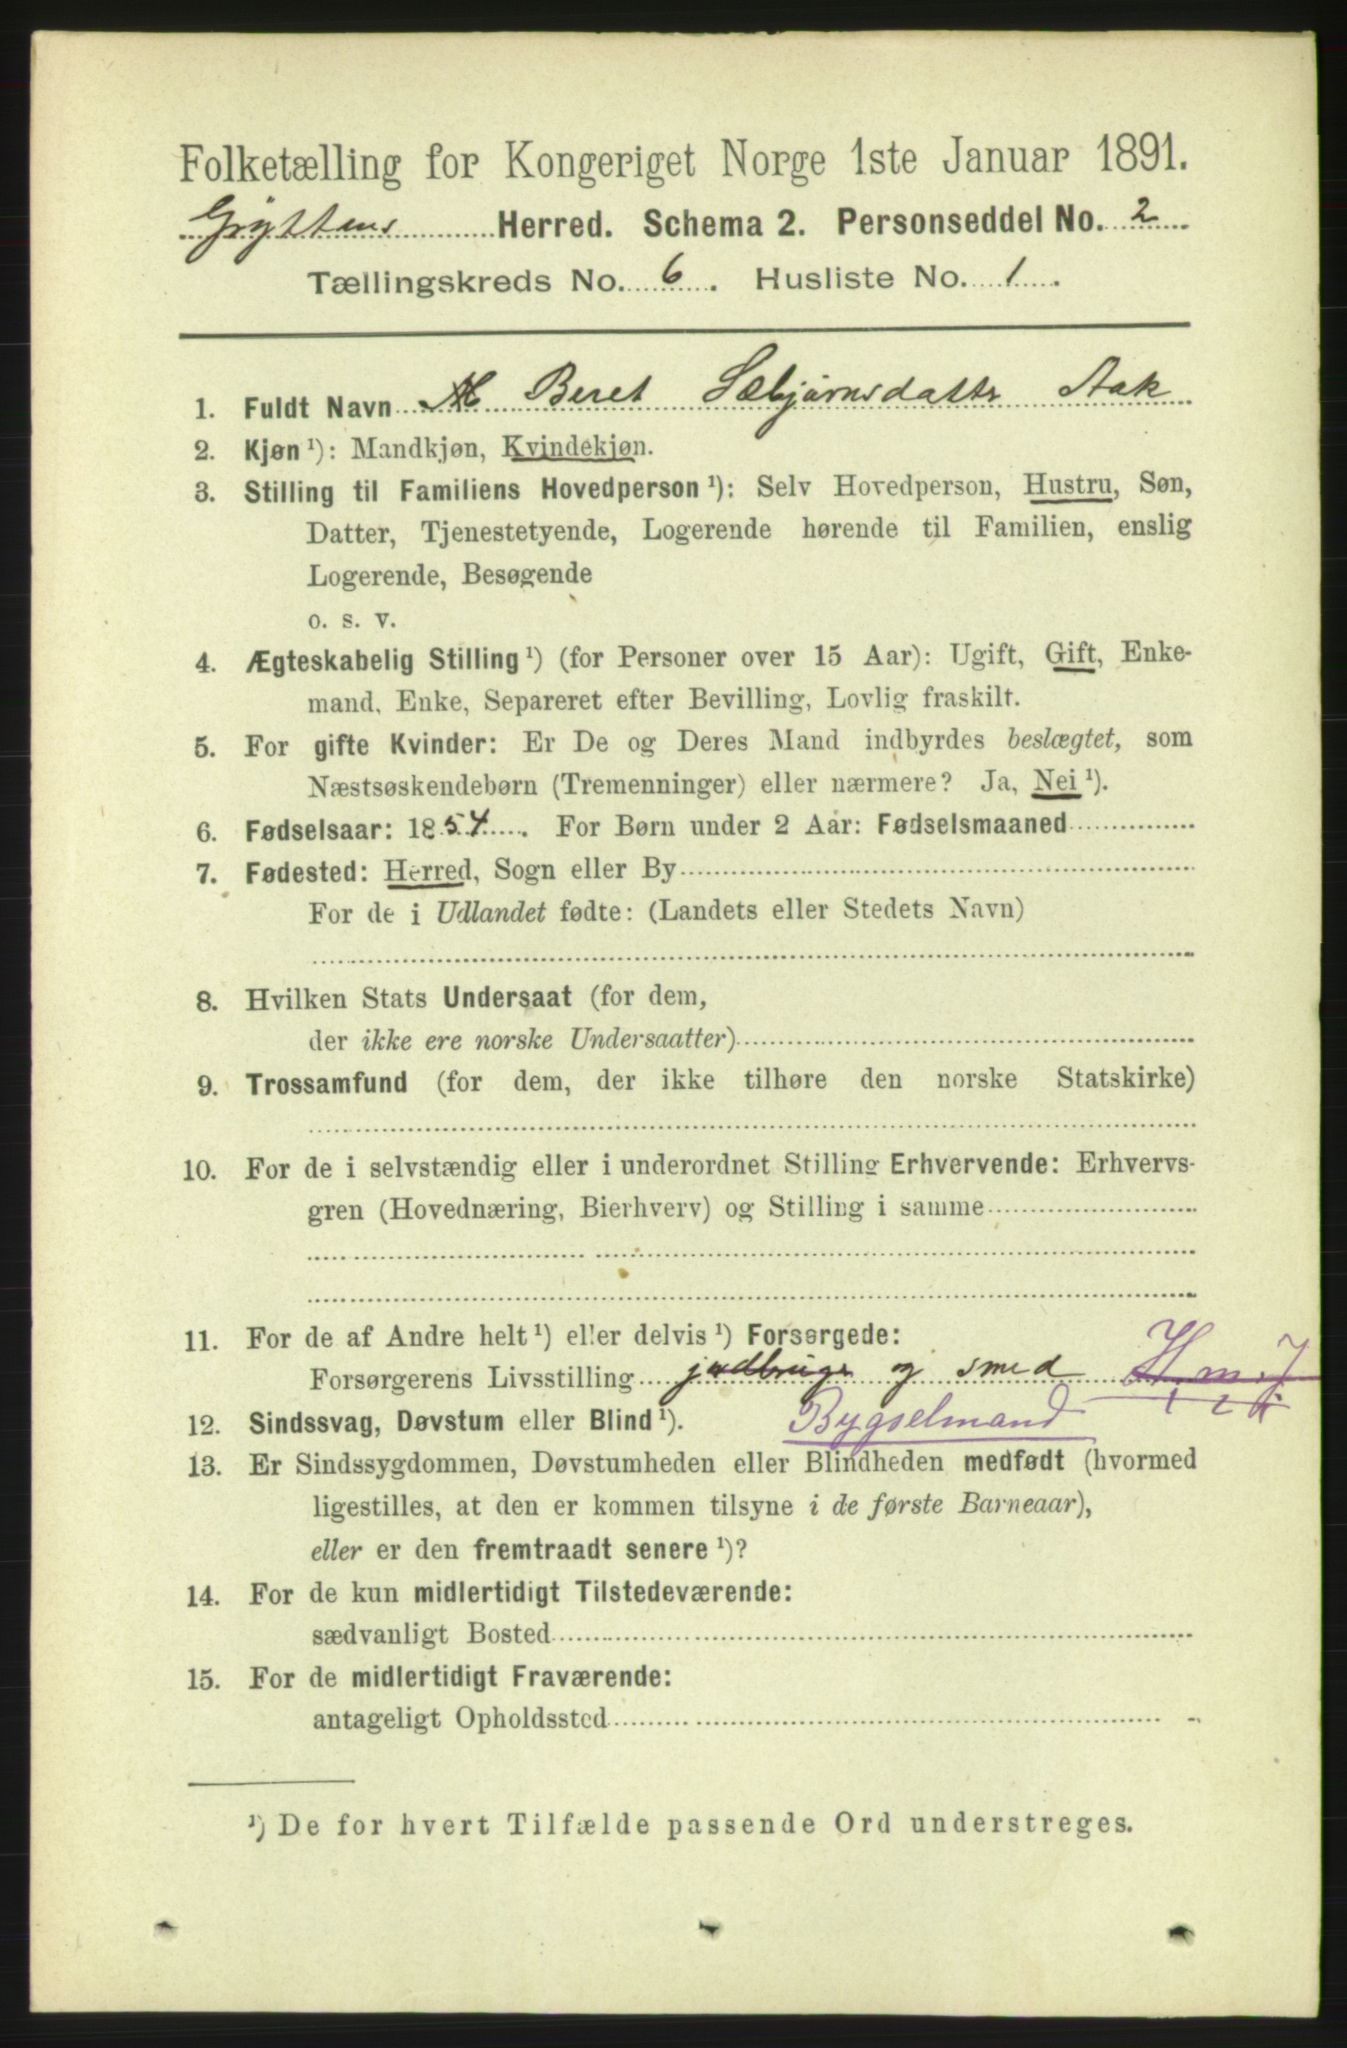 Folketælling for Kongeriget Norge 1ste Januar 1891.
Gryttens Herred. Schema 2. Personseddel No. 2
Tællingskreds No. 6. Husliste No. 1.
1. Fuldt Navn Beret Sæbjørnsdatter Aak
2. Kjøn ¹): Mandkjøn, Kvindekjøn.
3. Stilling til Familiens Hovedperson ¹): Selv Hovedperson, Hustru, Søn,
Datter, Tjenestetyende, Logerende hørende til Familien, enslig
Logerende, Besøgende
o. s. v.
4. Ægteskabelig Stilling ¹) (for Personer over 15 Aar): Ugift, Gift, Enke-
mand, Enke, Separeret efter Bevilling, Lovlig fraskilt.
5. For gifte Kvinder: Er De og Deres Mand indbyrdes beslægtet, som
Næstsøskendebørn (Tremenninger) eller nærmere? Ja, Nei ¹).
6. Fødselsaar: 1854. For Børn under 2 Aar: Fødselsmaaned
7. Fødested: Herred, Sogn eller By
For de i Udlandet fødte: (Landets eller Stedets Navn)
8. Hvilken Stats Undersaat (for dem,
der ikke ere norske Undersaatter)
9. Trossamfund (for dem, der ikke tilhøre den norske Statskirke)
10. For de i selvstændig eller i underordnet Stilling Erhvervende: Erhvervs-
gren (Hovednæring, Bierhverv) og Stilling i samme
11. For de af Andre helt ¹) eller delvis ¹) Forsørgede:
Forsørgerens Livsstilling jordbruger og smed
Bygselmand
12. Sindssvag, Døvstum eller Blind ¹).
13. Er Sindssygdommen, Døvstumheden eller Blindheden medfødt (hvormed
ligestilles, at den er kommen tilsyne i de første Barneaar),
eller er den fremtraadt senere ¹)?
14. For de kun midlertidigt Tilstedeværende:
sædvanligt Bosted
15. For de midlertidigt Fraværende:
antageligt Opholdssted
¹) De for hvert Tilfælde passende Ord understreges.